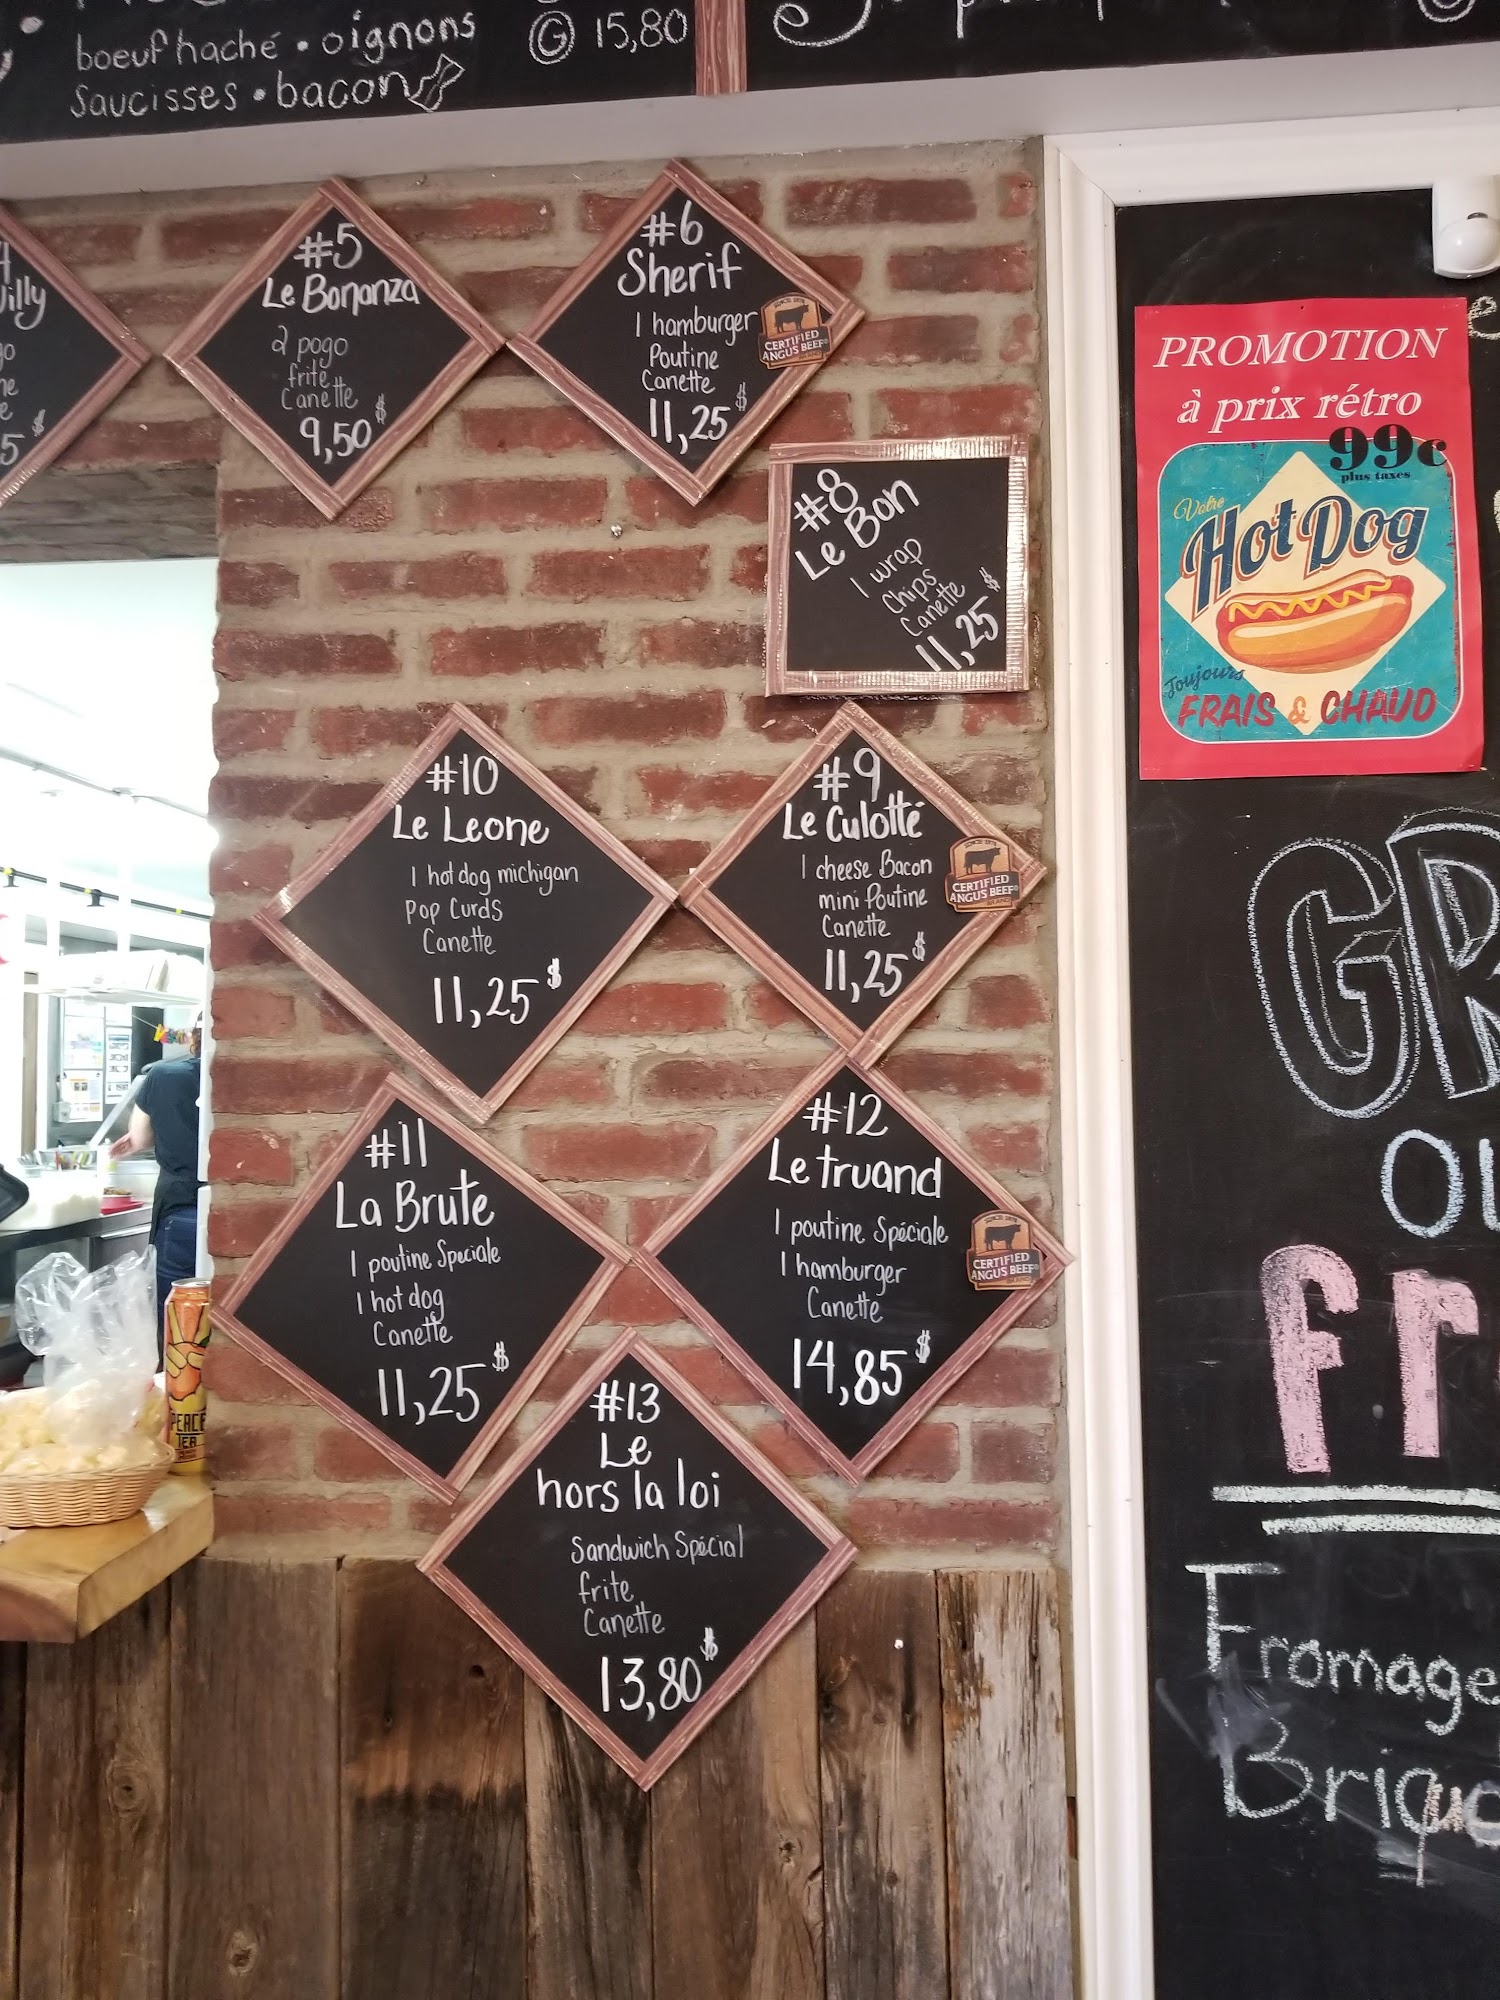 boeuf haché • oignons
saucisses • bacon
G 15,80
#5
Le Bonanza
2 pogo
frite
Canette
9,50$
#6
Sherif
1 hamburger
Poutine
Canette
11,25$
CERTIFIED
ANGUS BEEF®
#8
Le Bon
1 wrap
Chips
Canette
11,25$
#10
Le Leone
1 hot dog michigan
Pop Curds
Canette
11,25$
#9
Le Culotté
1 cheese Bacon
mini Poutine
Canette
11,25$
CERTIFIED
ANGUS BEEF®
#11
La Brute
1 poutine Speciale
1 hot dog
Canette
11,25$
#12
Le truand
1 poutine Spéciale
1 hamburger
Canette
14,85$
CERTIFIED
ANGUS BEEF®
#13
Le
hors la loi
Sandwich Spécial
frite
Canette
13,80$
PEACE
TEA
PROMOTION
à prix rétro
99c
plus taxes
Votre
Hot Dog
Toujours
FRAIS & CHAUD
GR
OU
Fr
Fromage
Brique